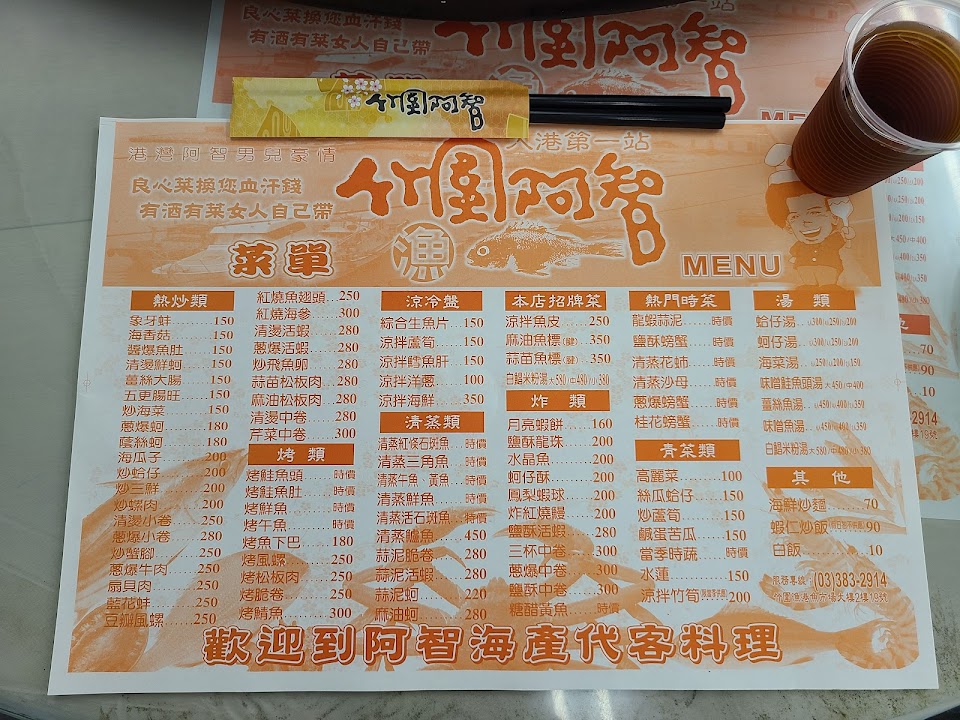 良心菜換您血汗錢
有酒有菜女人自己帶
竹圍阿智
竹圍阿智
入港第一站
港灣阿智男兒豪情
良心菜換您血汗錢
有酒有菜女人自己帶
竹圍阿智
漁
菜單
MENU
熱炒類
象牙蚌.......150
海香菇.......150
醬爆魚肚.....150
清燙鮮蚵.....150
薑絲大腸.....150
五更腸旺.....150
炒海菜.......150
蔥爆蚵.......180
蔭絲蚵.......180
海瓜子.......200
炒蛤仔.......200
炒三鮮.......200
炒螺肉.......200
清燙小卷.....250
蔥爆小卷.....280
炒蟹腳.......250
蔥爆牛肉.....250
扇貝肉.......250
藍花蚌.......250
豆瓣風螺.....250
紅燒魚翅頭...250
紅燒海參.....300
清燙活蝦.....280
蔥爆活蝦.....280
炒飛魚卵.....280
蒜苗松板肉...280
麻油松板肉...280
清燙中卷.....280
芹菜中卷.....300
烤類
烤鮭魚頭.....時價
烤鮭魚肚.....時價
烤鮮魚.......時價
烤午魚.......時價
烤魚下巴.....180
烤風螺.......250
烤松板肉.....250
烤脆卷.......250
烤鯖魚.......300
涼冷盤
綜合生魚片...150
涼拌蘆筍.....150
涼拌鱈魚肝...150
涼拌洋蔥.....100
涼拌海鮮.....350
清蒸類
清蒸紅條石斑魚 時價
清蒸三角魚...時價
清蒸午魚、黃魚 時價
清蒸鮮魚.....時價
清蒸活石斑魚..時價
清蒸鱸魚.....450
蒜泥脆卷.....280
蒜泥活蝦.....280
蒜泥蚵.......220
麻油蚵.......280
本店招牌菜
涼拌魚皮.....250
麻油魚標(鰱)..350
蒜苗魚標(鰱)..350
白鯧米粉湯大580/中480/小380
炸類
月亮蝦餅.....160
鹽酥龍珠.....200
水晶魚.......200
蚵仔酥.......200
鳳梨蝦球.....200
炸紅燒鰻.....200
鹽酥活蝦.....280
三杯中卷.....300
蔥爆中卷.....300
鹽酥中卷.....300
糖醋黃魚.....時價
熱門時菜
龍蝦蒜泥.....時價
鹽酥螃蟹.....時價
清蒸花蟳.....時價
清蒸沙母.....時價
蔥爆螃蟹.....時價
桂花螃蟹.....時價
青菜類
高麗菜.......100
絲瓜蛤仔.....150
炒蘆筍.......150
鹹蛋苦瓜.....150
當季時蔬.....時價
水蓮.........150
涼拌竹筍(限當季供應)200
湯類
蛤仔湯..大300/中250/小200
蚵仔湯..大300/中250/小200
海菜湯..大250/中200/小150
味噌鮭魚頭湯 大450/中400
薑絲魚湯..大450/中400/小350
味噌魚湯..大450/中400/小350
白鯧米粉湯大580/中480/小380
其他
海鮮炒麵.......70
蝦仁炒飯 90
白飯...........10
服務專線：(03)383-2914
竹圍漁港魚市場大樓2樓19號
歡迎到阿智海產代客料理